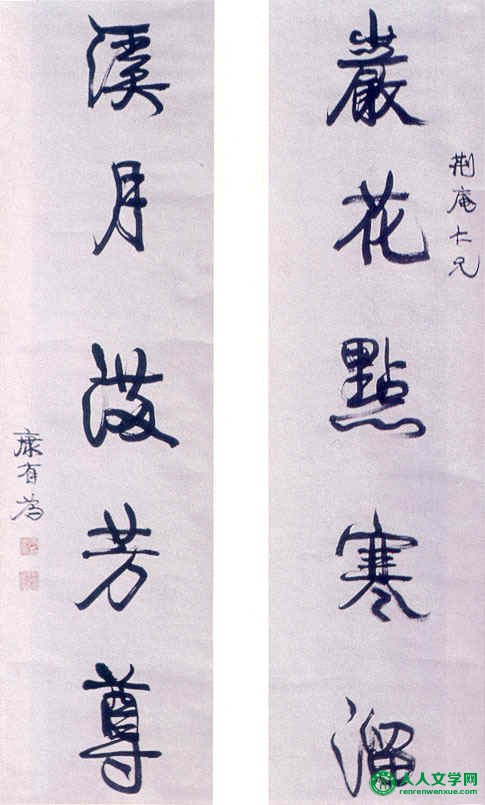 荆庵仁兄
巖花點寒溜
溪月芳尊
康有為
人人文学网
renrenwenxue.com